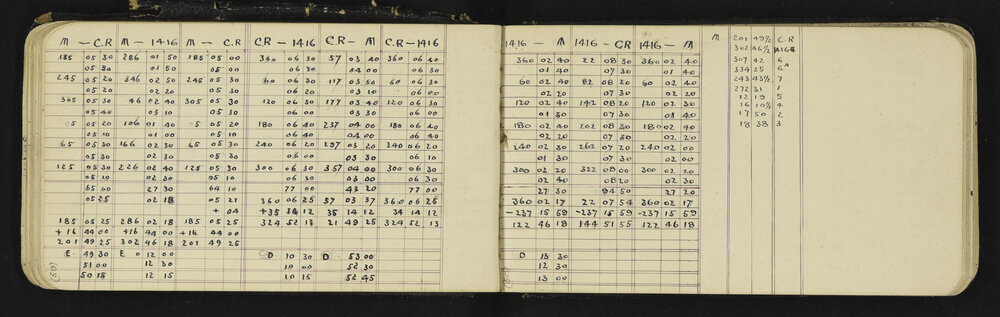 M – C.R M – 1416 M – C.R C.R – 1416 C.R – M C.R – 1416
185 05 30 286 01 50 185 05 00 360 06 30 57 03 40 360 06 40
05 30 01 50 05 00 06 30 03 40 06 40
245 05 20 346 02 50 245 05 30 60 06 30 117 03 50 60 06 30
05 20 02 20 05 30 06 20 03 10 06 00
305 05 30 46 02 40 305 05 30 120 06 30 177 03 40 120 06 30
05 40 03 10 05 30 06 00 03 30 06 00
5 05 20 106 01 40 5 05 20 180 06 40 237 04 00 180 06 40
05 10 01 00 05 10 06 40 04 00 06 40
65 05 30 166 02 30 65 05 30 240 06 20 297 03 20 240 06 20
05 30 02 30 05 30 06 00 03 30 06 10
125 05 30 226 02 40 125 05 30 300 06 30 357 04 00 300 06 30
05 10 02 30 05 10 06 30 03 00 06 30
65 00 27 30 64 10 77 00 43 20 77 00
05 25 02 18 05 21 360 06 25 57 03 37 360 06 25
+ 04 +35 34 12 35 14 12 34 14 12
185 05 25 286 02 18 185 05 25 324 52 13 21 49 25 324 52 13
+16 44 00 +16 44 00 +16 44 00
201 49 25 302 46 18 201 49 25
E 49 30 E 12 00 D 10 30 D 53 00
51 00 12 30 10 00 52 30
50 15 12 15 10 15 52 45
(59)
1416 – M 1416 – CR 1416 – M
360 02 40 22 08 30 360 02 40
01 40 07 30 01 40
60 02 40 82 08 20 60 02 40
02 20 07 30 02 20
120 02 40 142 08 20 120 02 30
01 30 07 30 01 40
180 02 40 202 08 30 180 02 40
02 20 07 30 02 20
240 02 30 262 07 20 240 02 00
01 30 07 30 02 00
300 02 20 322 08 00 300 02 20
02 40 08 20 02 30
27 30 94 50 27 20
360 02 17 22 07 54 360 02 17
–237 15 59 –237 15 59 –237 15 59
122 46 18 144 51 55 122 46 18
D 13 30
12 30
13 00
M – 201 49½ C.R
302 46½ 1416
307 42 6
334 25 6A
243 43½ 7
272 31 1
12 19 5
16 10½ 4
17 50 2
18 38 3